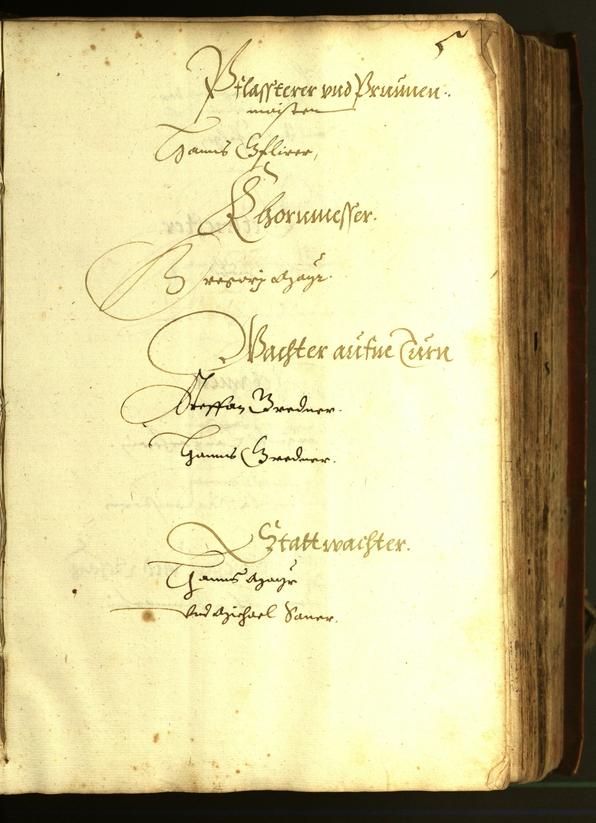 5
Pflassterer vnd Prunnen
maister
Hanns Gflirer,
Khornmesser.
Gregorj Mayr.
Wachter aufm Turn
Steffan Gredner.
Hanns Gredner.
Stattwachter.
Hanns Mayr
vnd Michael Saner.